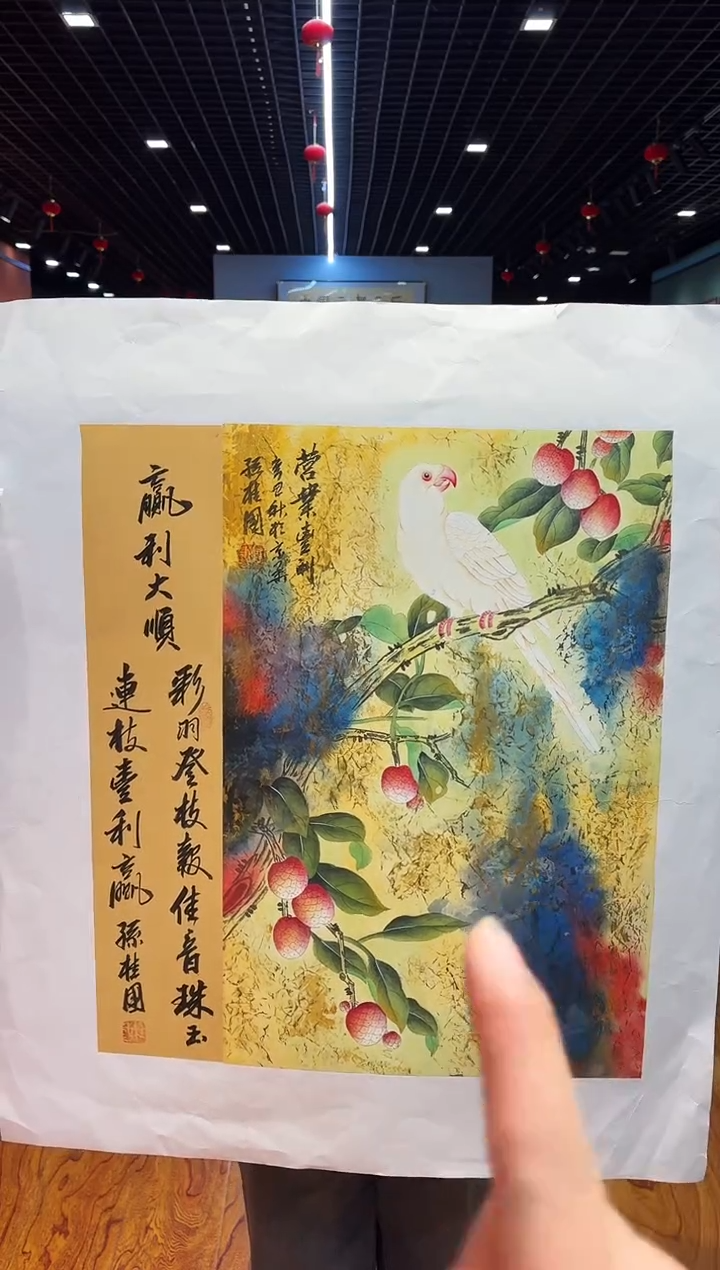 贏利大順
彩羽登枝報佳音珠玉
連枝壹利贏 孫桂國
營業壹利
巳秋於京華
孫桂國